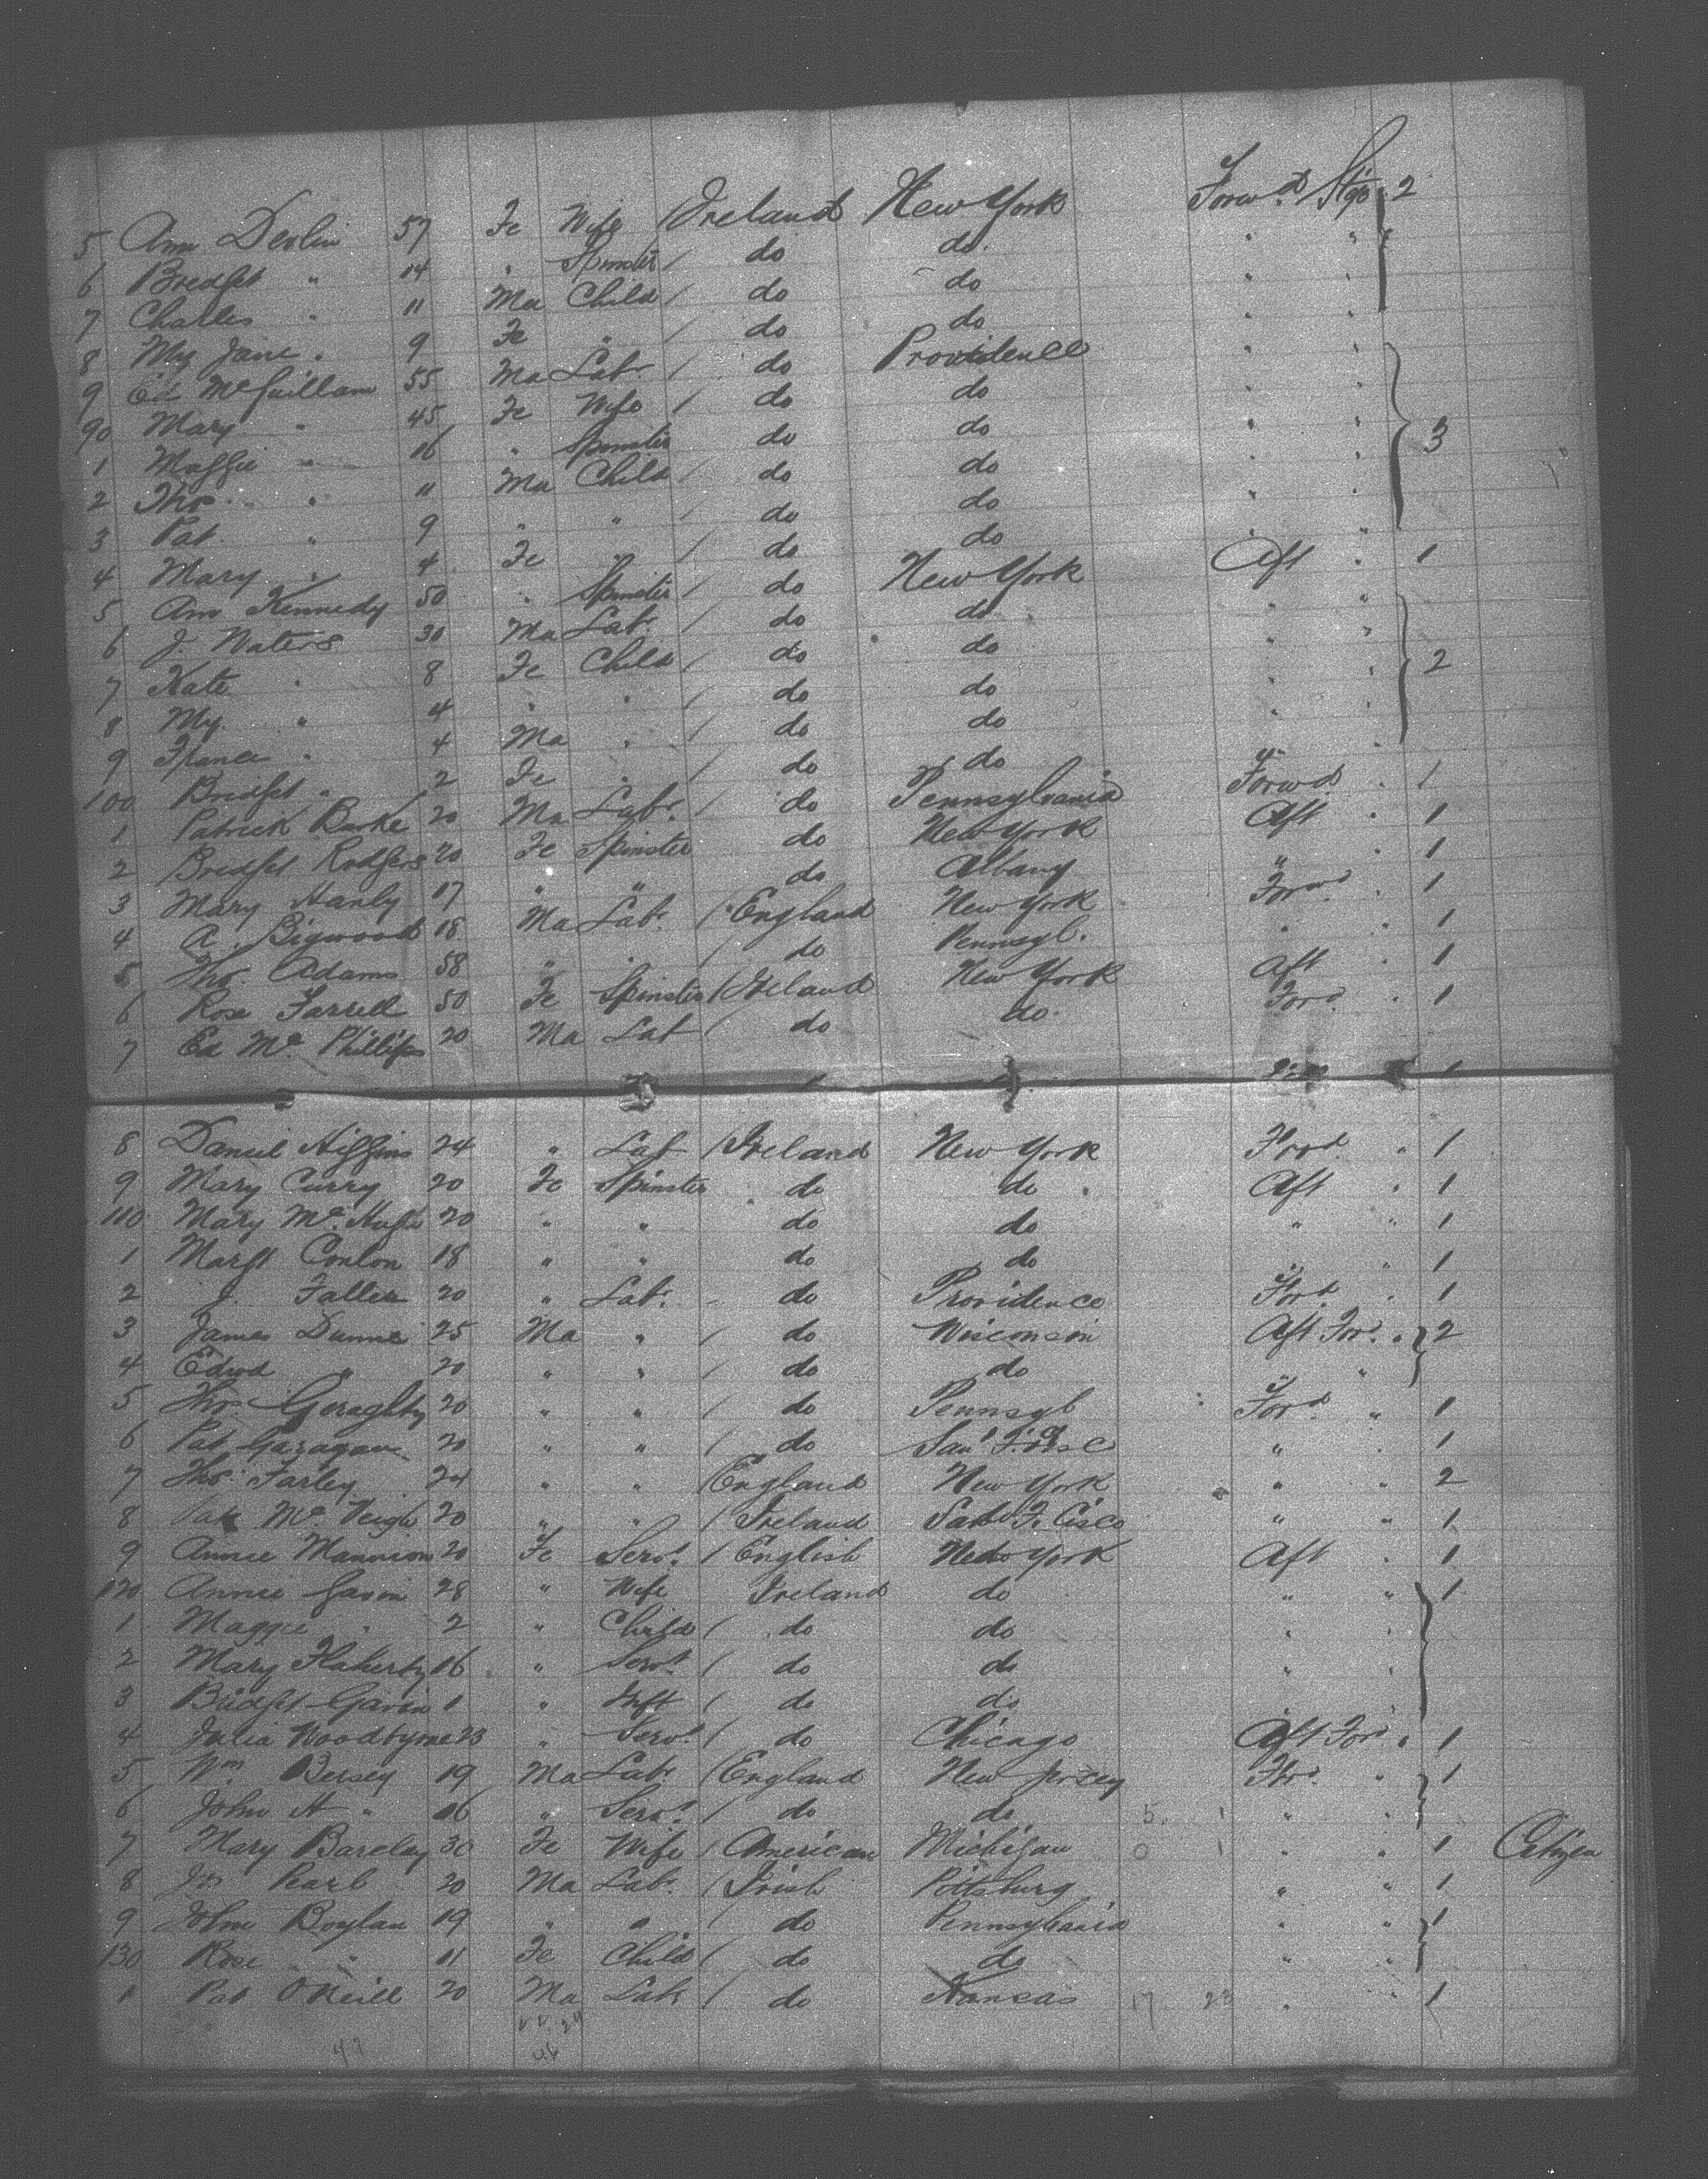 5 Ann Devlin 57 Fe Wife / Ireland New York Forwd Stge 2
6 Bredget " 14 " Spinster / do do " "
7 Charles " 11 Ma Child / do do " "
8 My Jane " 9 Fe " / do do " "
9 Ed McGuillam 55 Ma Labr / do Providence " "
90 Mary " 45 Fe Wife / do do " "
1 Maggie " 16 " Spinster do do " " 3
2 Thos " 11 Ma Child / do do " "
3 Pat " 9 " " / do do " "
4 Mary " 4 Fe " / do do " "
5 Ann Kennedy 50 " Spinster / do New York Aft " 1
6 J. Waters 30 Ma Labr / do do " "
7 Kate " 8 Fe Child / do do " " 2
8 My " 4 " " / do do " "
9 " 4 Ma " / do do " "
100 Bredget " 2 Fe " / do do
1 Patrick Burke 20 Ma Labr / do Pennsylvania Forwd " 1
2 Bredget Rodgers 20 Fe Spinster do New York Aft " 1
3 Mary Hanly 17 " " do Albany " " 1
4 A. Bigwood 18 Ma Labr / England New York Forwd " 1
5 Thos Adams 58 " " / do Pennsyl. " " 1
6 Rose Farrell 50 Fe Spinster / Ireland New York Aft " 1
7 Ed Mc Phillips 20 Ma Lab / do do Ford " 1
8 Daniel Higgins 24 " Lab / Ireland New York Ford " 1
9 Mary Curry 20 Fe Spinster do do Aft " 1
110 Mary Mc 20 " " do do " " 1
1 Margt Conlon 18 " " do do " " 1
2 J. Fallen 20 " Labr do Providence Ford " 1
3 James Dunne 25 Ma " / do Wisconsin Aft For. " 2
4 Edwd " 20 " " / do do "
5 Thos Geraghty 20 " " / do Pennsyl Ford " 1
6 Pat Garagan 20 " " / do San Fr'isc " " 1
7 Thos Farley 24 " " / England New York " " 2
8 Mc Veigh 20 " " / Ireland San Fr Cisco " " 1
9 Annie Mannion 20 Fe Servt / English New York Aft " 1
120 Annie Gavin 28 " Wife Ireland do " " 1
1 Maggie " 2 " Child / do do "
2 Mary Flaherty 16 " Servt / do do " "
3 Bridget Gavin 1 " Inft / do do " "
4 Julia Woodbyrne 23 " Servt / do Chicago Aft For. " 1
5 Wm Bersey 19 Ma Labr / England New Jersey For. " 1
6 John H " 16 " Servt / do do " "
7 Mary Barclay 30 Fe Wife / American Michigan " " 1 Citizen
8 Jn Pearl 20 Ma Labr / Irish Pittsburg " " 1
9 John Boylan 19 " " / do Pennsylvania " " 1
130 Rose " 11 Fe Child / do do " "
1 Pat O'Neill 20 Ma Labr / do Kansas 17 23 " 1
47 46